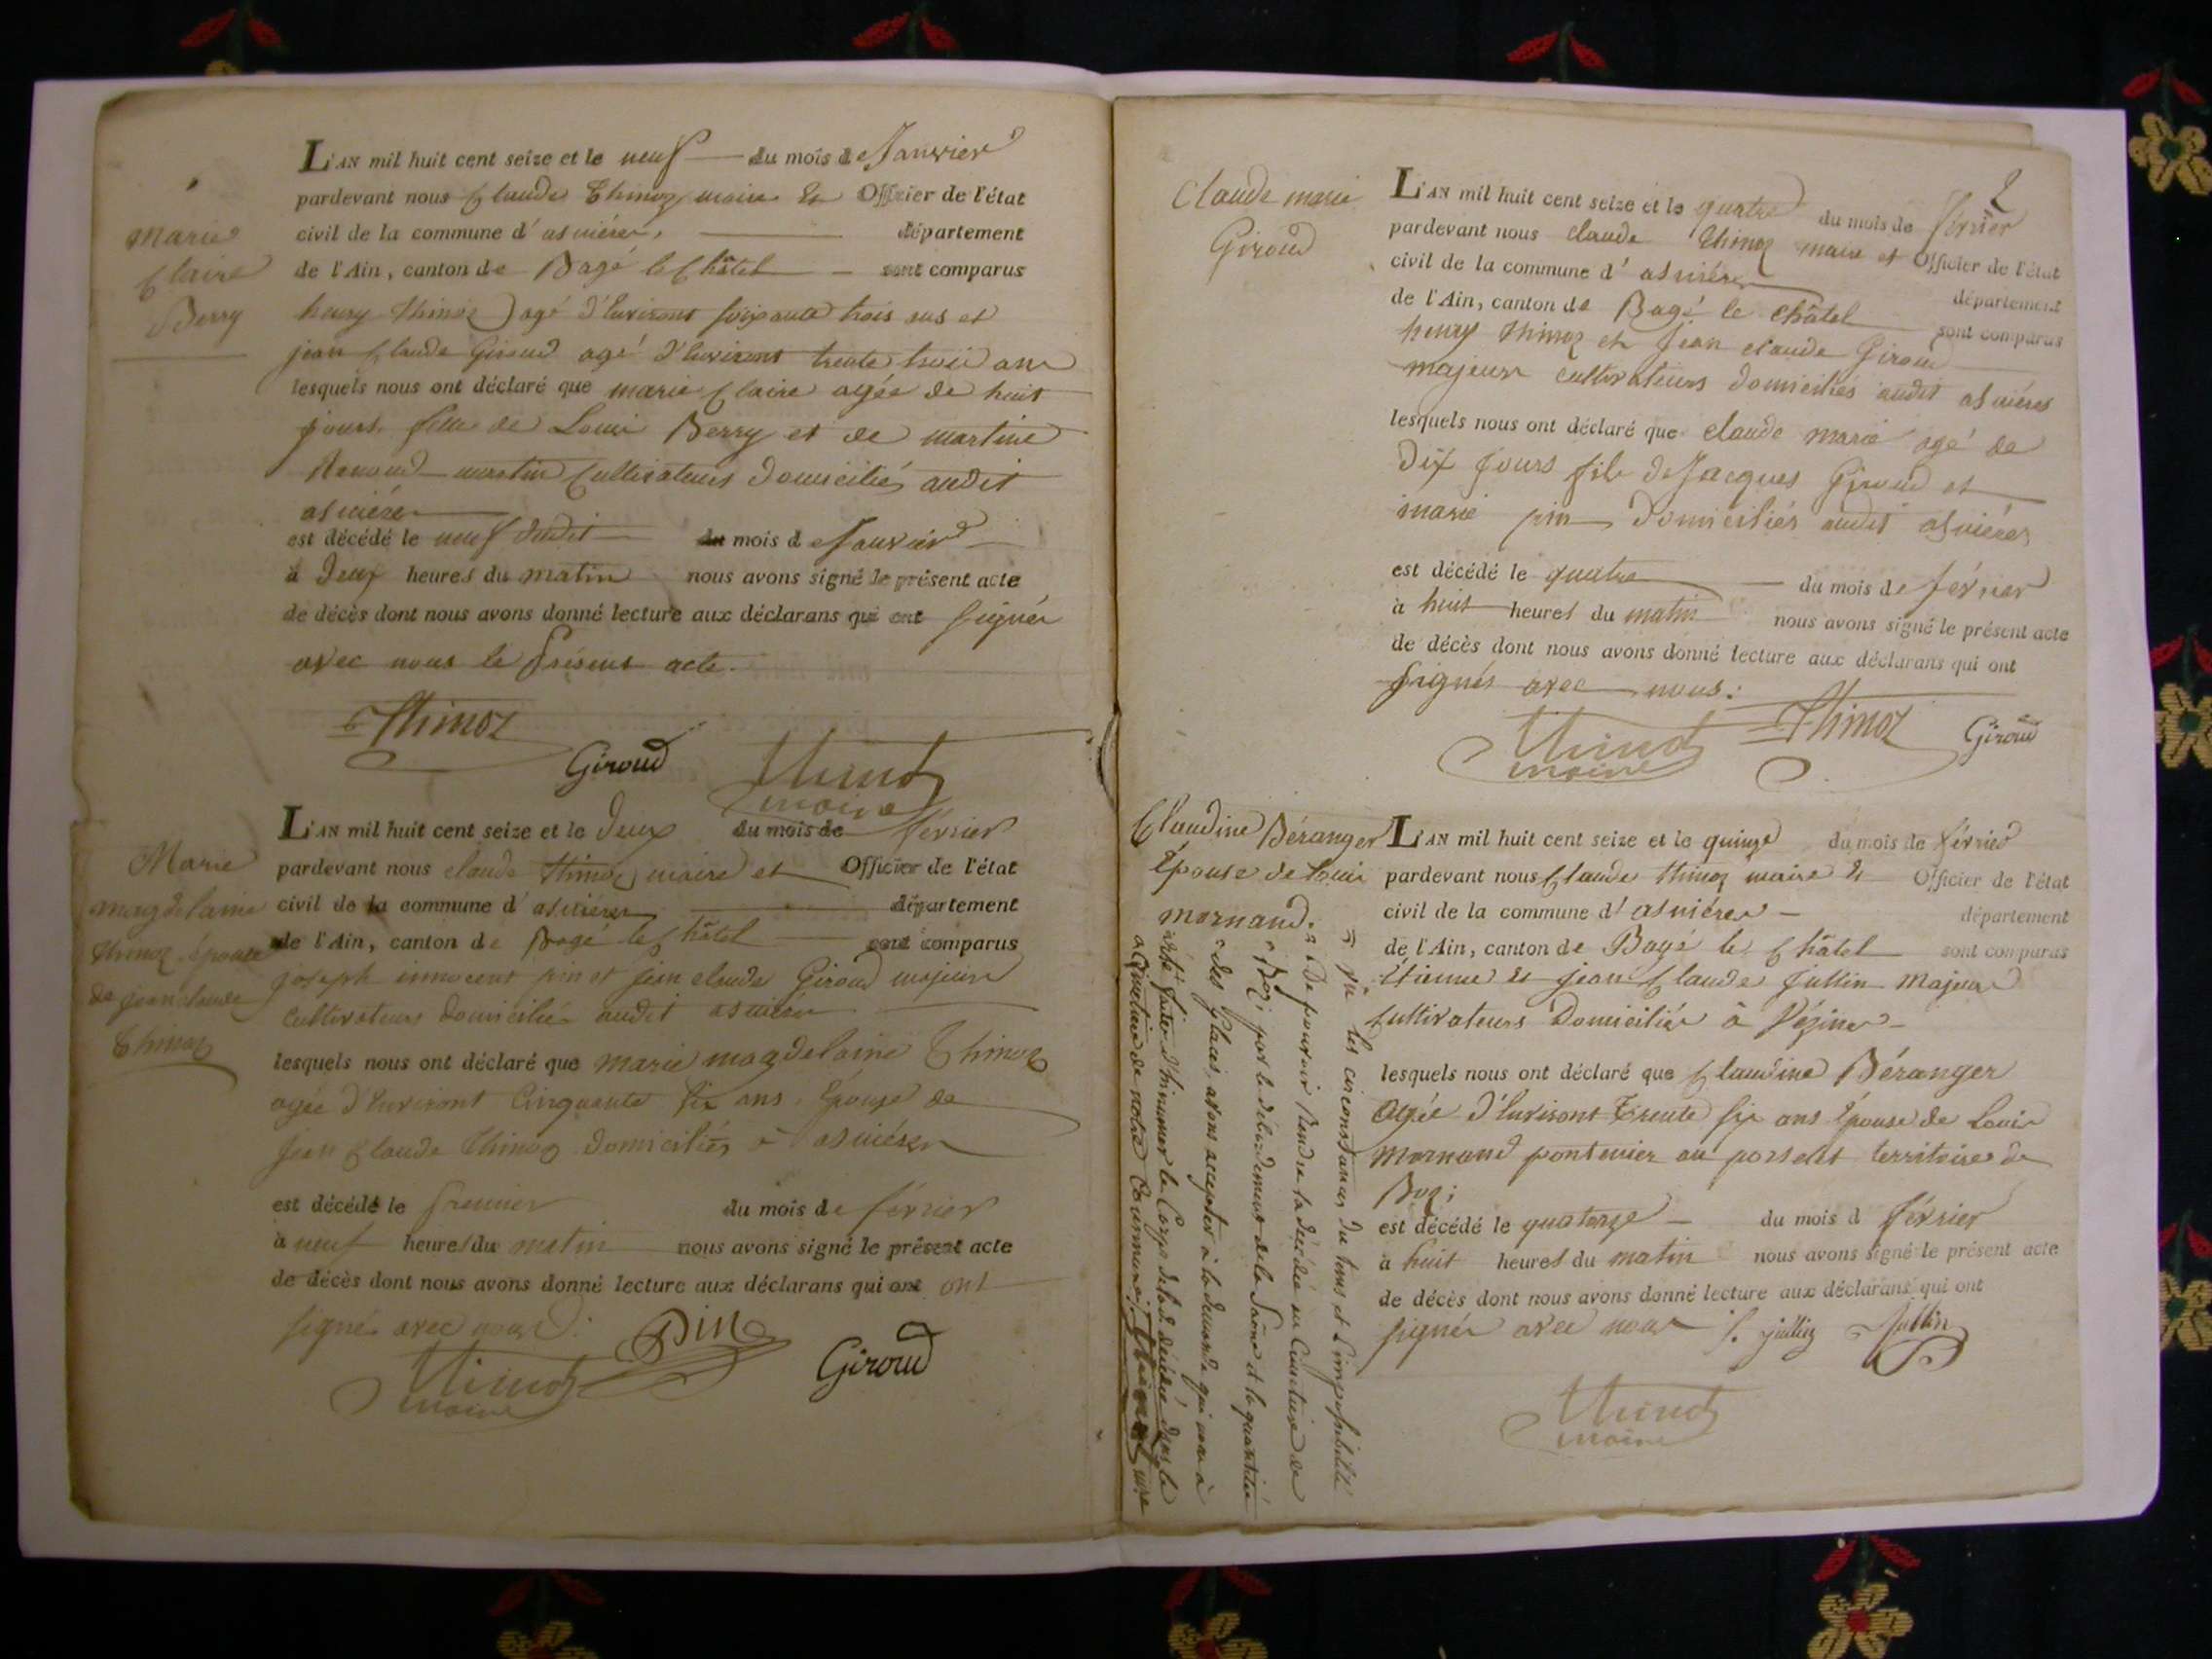 Marie
Claire
Berry
L'AN mil huit cent seize et le neuf du mois de Janvier
pardevant nous Claude Thimoz maire et Officier de l'état
civil de la commune d'asniéres, département
de l'Ain, canton de Bagé le Châtel sont comparus
henry thimoz agé d'Environt soixante trois ans et
jean Claude Giroud agé d'Environt trente trois ans
lesquels nous ont déclaré que marie Claire agée de huit
jours fille de Louis Berry et de martine
Renoud martin Cultivateurs domiciliés audit
asniéres
est décédé le neuf dudit du mois de Janvier
à deux heures du matin nous avons signé le présent acte
de décès dont nous avons donné lecture aux déclarans qui ont signés
avec nous le présent acte.
Thimoz
Giroud
Thimoz
maire
Marie
magdelaine
thimoz épouse
de jean claude
Thimoz
L'AN mil huit cent seize et le deux du mois de février
pardevant nous claude thimoz maire et Officier de l'état
civil de la commune d'asniéres département
de l'Ain, canton de Bagé le Châtel sont comparus
joseph innocent pin et jean claude Giroud majeurs
cultivateurs domiciliés audit asniéres
lesquels nous ont déclaré que marie magdelaine Thimoz
agée d'Environt Cinquante six ans, Epouse de
jean Claude Thimoz domiciliés à asniéres
est décédé le premier du mois de février
à neuf heures du matin nous avons signé le présent acte
de décès dont nous avons donné lecture aux déclarans qui ont ont
signé avec nous
Pin
Giroud
Thimoz
maire
2
Claude marie
Giroud
L'AN mil huit cent seize et le quatre du mois de février
pardevant nous claude thimoz maire et Officier de l'état
civil de la commune d'asniéres département
de l'Ain, canton de Bagé le châtel sont comparus
henry thimoz et jean claude Giroud
majeurs cultivateurs domiciliés audit asniéres
lesquels nous ont déclaré que claude marie agé de
dix jours fils de Jacques Giroud et
marie pin domiciliés audit asniéres
est décédé le quatre du mois de février
à huit heures du matin nous avons signé le présent acte
de décès dont nous avons donné lecture aux déclarans qui ont
signés avec nous:
Thimoz
maire
Thimoz
Giroud
Claudine Béranger
Epouse de Louis
mornand.
L'AN mil huit cent seize et le quinze du mois de février
pardevant nous Claude thimoz maire et Officier de l'état
civil de la commune d'asniéres département
de l'Ain, canton de Bagé le Châtel sont comparus
Etienne et jean Claude jullin majeurs
Cultivateurs domiciliés à Vézines
lesquels nous ont déclaré que Claudine Béranger
agée d'Environt Trente six ans Epouse de Louis
mornand pontenier au port territoire de
Boz;
est décédé le quatorze du mois d février
à huit heures du matin nous avons signé le présent acte
de décès dont nous avons donné lecture aux déclarans qui ont
signés avec nous
jullin
jullin
Thimoz
maire
vu les circonstances du tems et L'impossibilité
De pouvoir Rendre la décédée au Cimetière de
Boz; par le débordement de la Saône et la quantité
des glaces, avons accepter à la demande qui nous à
été faite d'hinumer le Corps de la décédée dans le
Cimetière de notre Commune; Thimoz maire